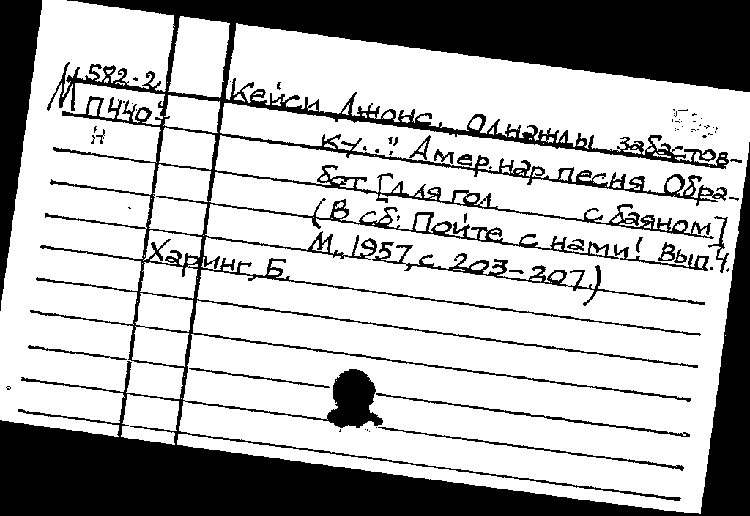 М 582-2
П440
н
Кейси Джонс. „Однажды забастов-
ку..." Амер. нар. песня. Обра-
бот. [для гол. с баяном.]
(В сб: Пойте с нами! Вып. 4.
М., 1957, с. 203-207.)
Харинг, Б.